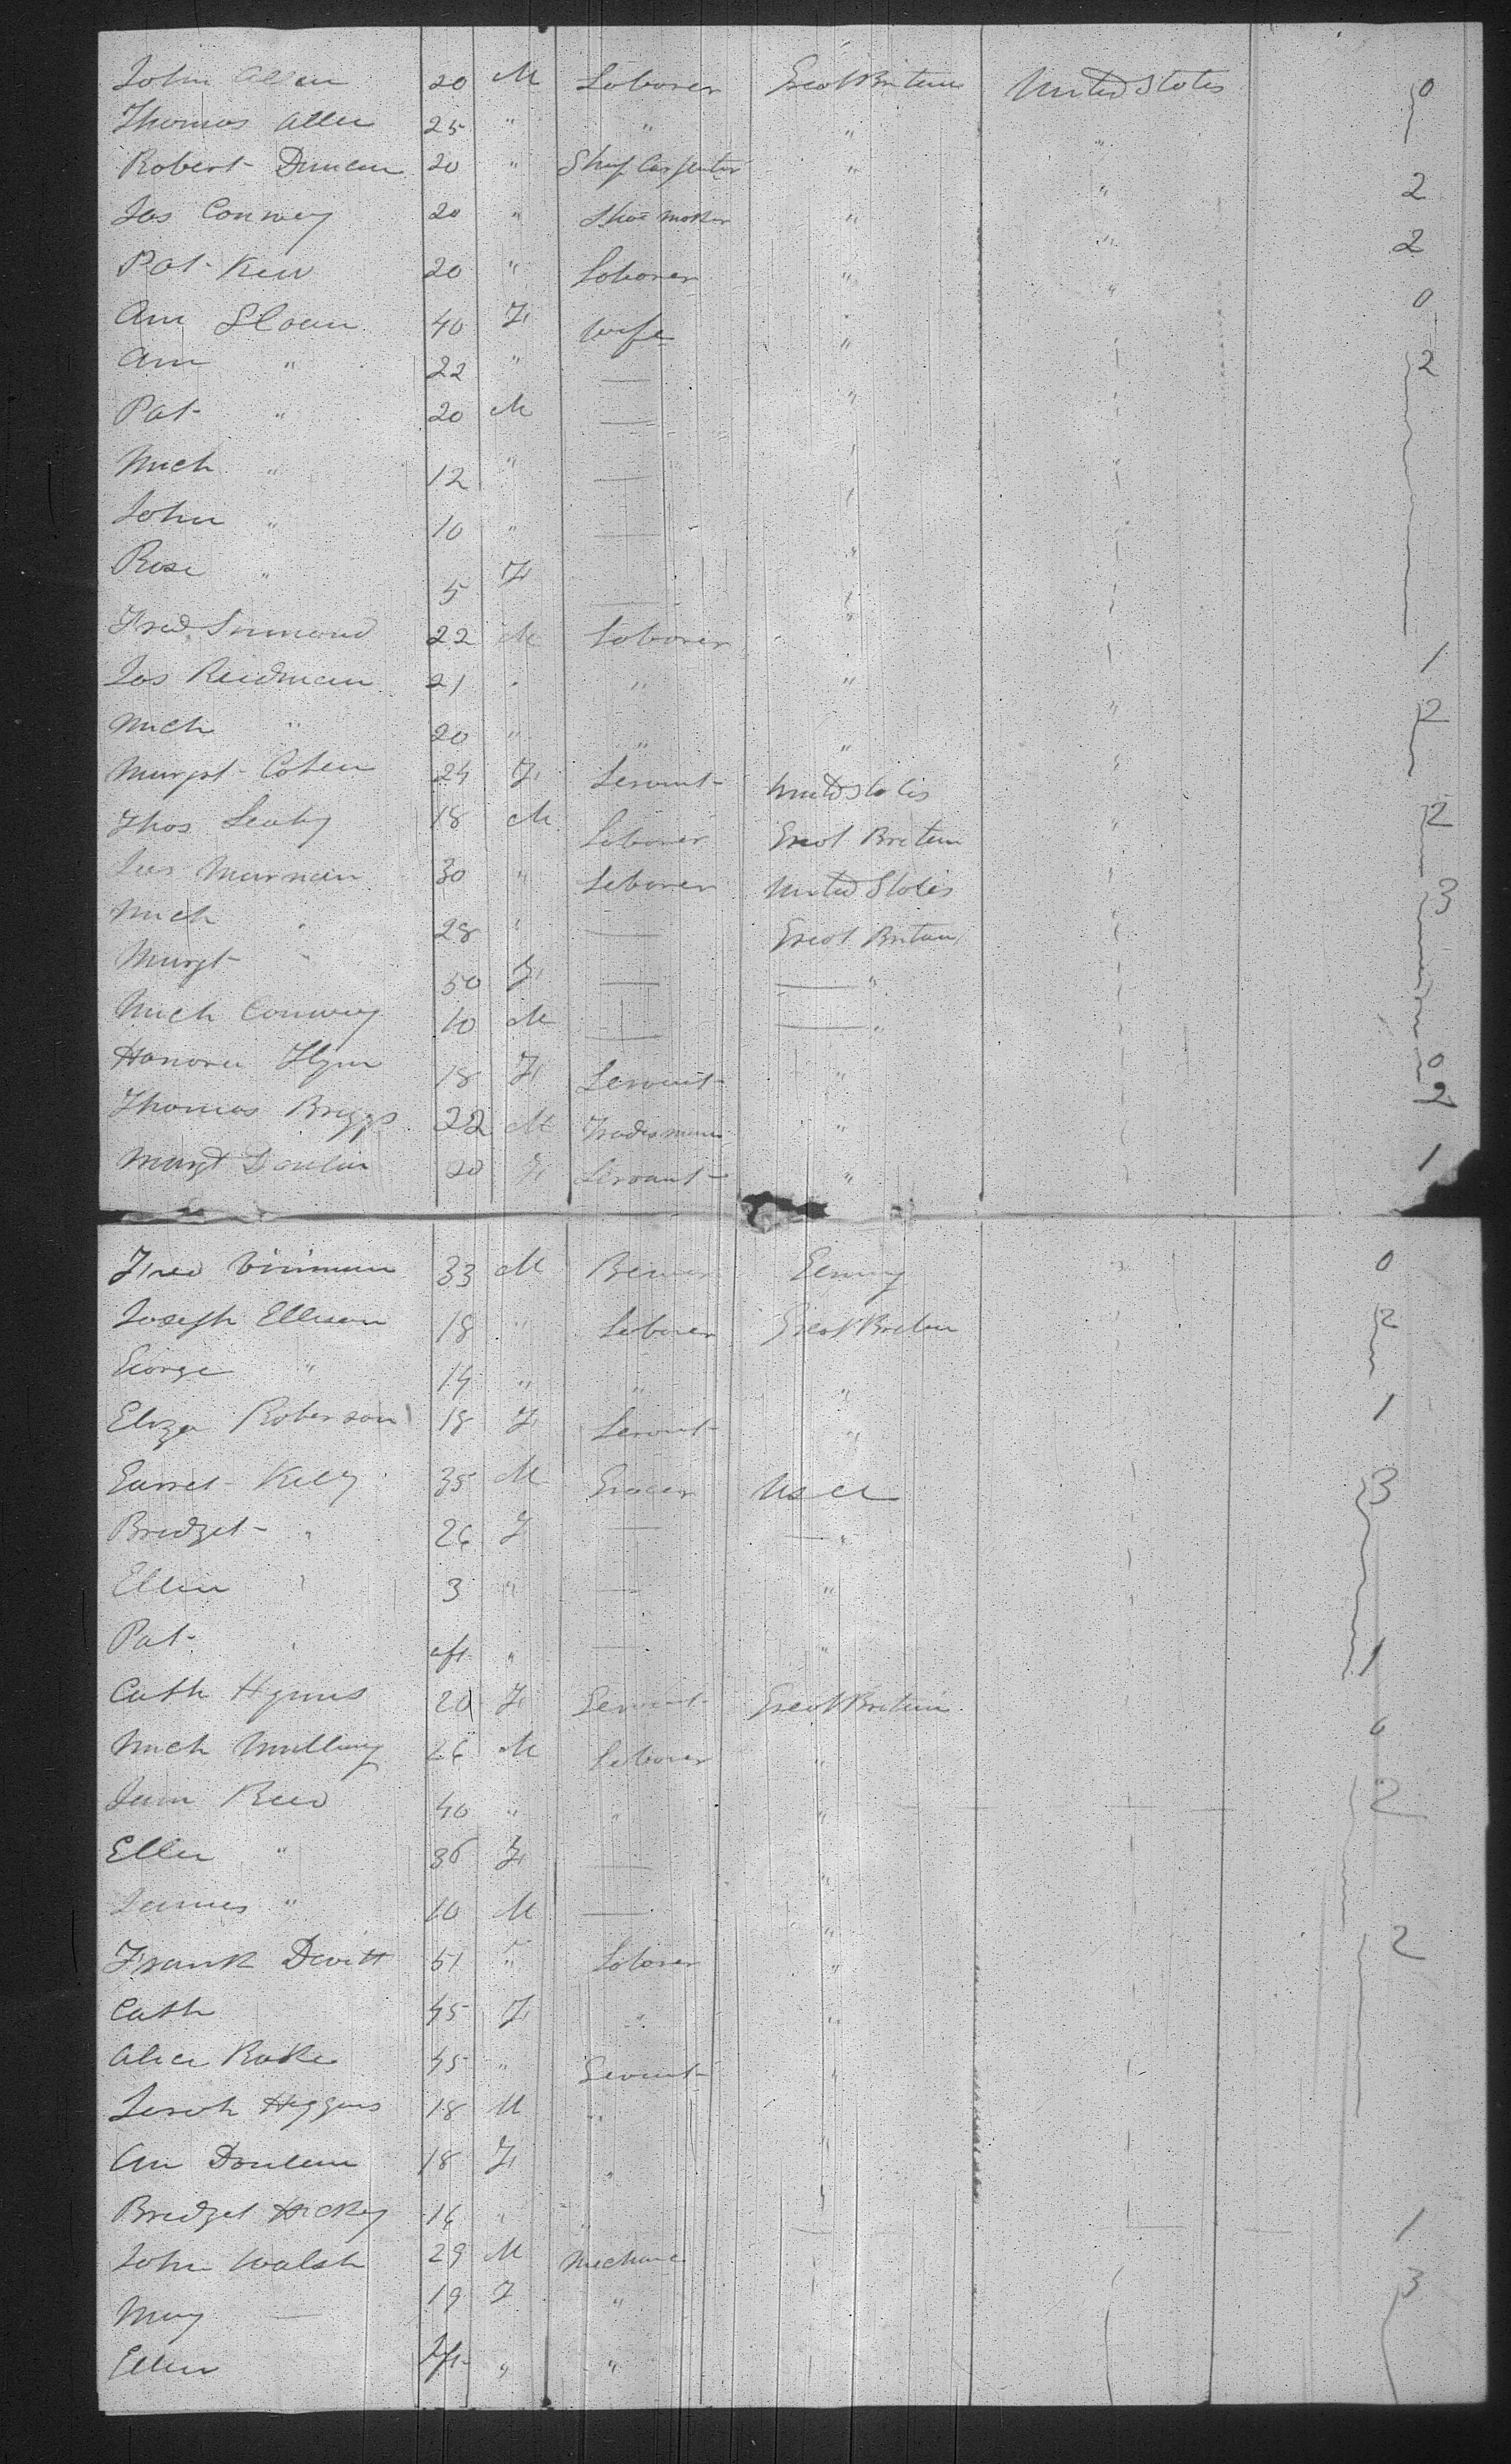 John Allen 20 M Laborer Great Britain United States 0
Thomas Allen 25 " " " "
Robert Duncan 20 " Ship Carpenter " " 2
Jas Conway 20 " Shoe maker " " 2
Pat Kew 20 " Laborer " " 0
Ann Sloan 40 F Wife " 2
Ann " 22 " — "
Pat " 20 M — "
Mich " 12 " —
John " 10 " —
Rose " 5 F —
Fred 22 M Laborer " 1
Jas Reidman 21 " " " " 2
Mich " 20 " " " "
Margt Cohen 24 F Servant United States " 2
Thos Leahy 18 M Laborer Great Britain "
Jas Murnain 30 " Laborer United States 3
Mich " 28 " — Great Britain "
Margt " 50 F — — "
Mich Conway 10 M — — "
Honora Flynn 18 F Servant " 0
Thomas Briggs 22 M Tradesman " 2
Margt Donlin 20 F Servant " 1
Fred 33 M Germany 0
Joseph Ellison 18 " Laborer Great Britain 2
George " 14 " " "
Eliza Roberson 18 F Servant " 1
Garret Kelly 35 M Grocer USA 3
Bridget " 26 F — — "
Ellen " 3 " — "
Pat " " — " 1
Cath Hynes 20 F Servant Great Britain
Mich 26 M Laborer " 0
Reed 40 " " " 2
Ellen " 36 F — "
James " 10 M — "
Frank Devitt 51 " Laborer " 2
Cath 45 F " "
Alice 45 " Servant "
Higgins 18 M "
Ann Donlan 18 F "
Bridget Hickey 16 " " 1
John Walsh 29 M Mechanic 3
May — 19 F "
Ellen " "